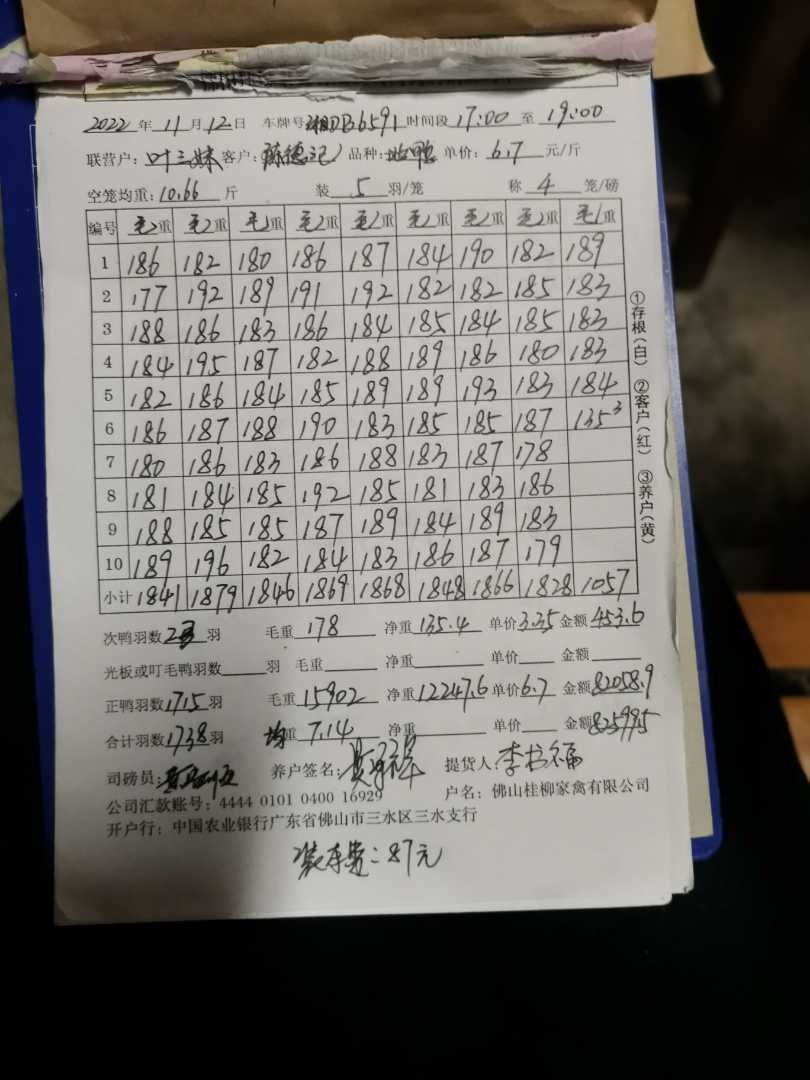 2022 年 11 月 12 日 车牌号 湘DB6591 时间段 17:00 至 19:00
联营户: 叶三妹 客户: 陈德记 品种: 单价: 6.7 元/斤
空笼均重: 10.66 斤 装 5 羽/笼 称 4 笼/磅
编号 毛重 毛重 毛重 毛重 毛重 毛重 毛重 毛重 毛重
1 186 182 180 186 187 184 190 182 189
2 177 192 189 191 192 182 182 185 183
3 188 186 183 186 184 185 184 185 183
4 184 195 187 182 188 189 186 180 183
5 182 186 184 185 189 189 193 183 184
6 186 187 188 190 183 185 185 187 135 3
7 180 186 183 186 188 183 187 178
8 181 184 185 192 185 181 183 186
9 188 185 185 187 189 184 189 183
10 189 196 182 184 183 186 187 179
小计 1841 1879 1846 1869 1868 1848 1866 1828 1057
①存根(白) ②客户(红) ③养户(黄)
次鸭羽数 23 羽 毛重 178 净重 135.4 单价 3.35 金额 453.6
光板或叮毛鸭羽数 羽 毛重 净重 单价 金额
正鸭羽数 1715 羽 毛重 15902 净重 12247.6 单价 6.7 金额 82058.9
合计羽数 1738 羽 均重 7.14 净重 单价 金额 82599.5
司磅员: 养户签名: 提货人: 李书福
公司汇款账号: 4444 0101 0400 16929 户名: 佛山桂柳家禽有限公司
开户行: 中国农业银行广东省佛山市三水区三水支行
装车费: 87元